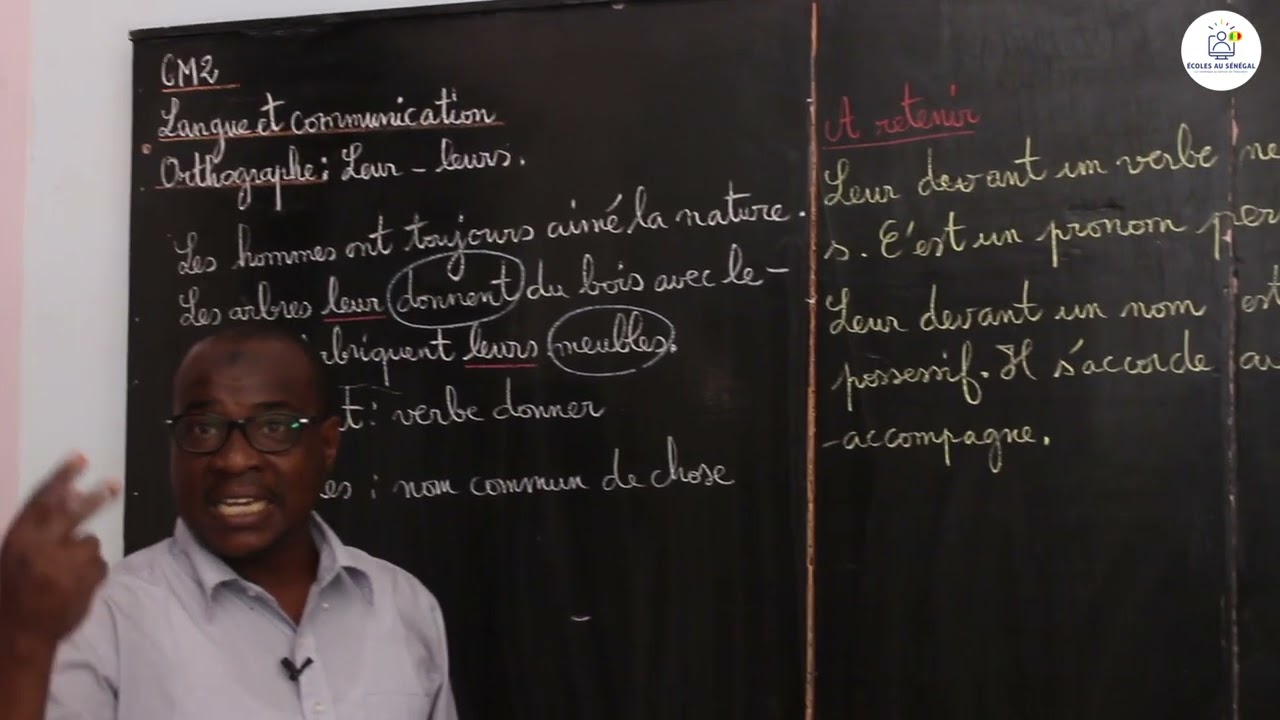 CM2
Langue et communication
Orthographe : Leur - leurs.
Les hommes ont toujours aimé la nature.
Les arbres leur donnent du bois avec le-
briquent leurs meubles.
t : verbe donner
es : nom commun de chose
A retenir
Leur devant un verbe ne
s. C'est un pronom per
Leur devant un nom est
possessif. Il s'accorde av
-accompagne.
ÉCOLES AU SÉNÉGAL